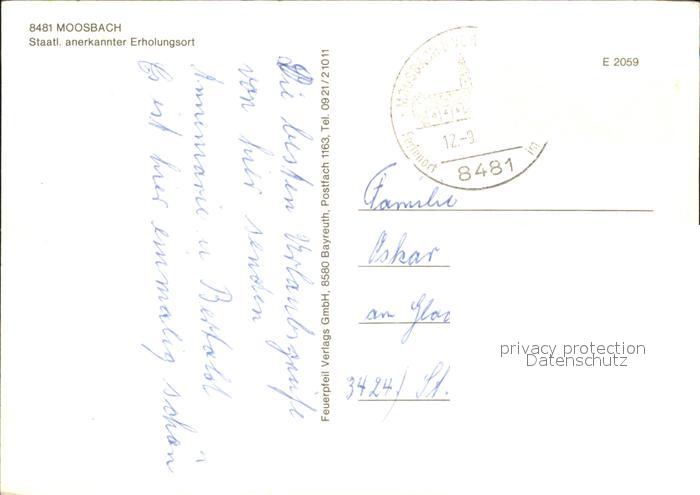 8481 MOOSBACH
Staatl. anerkannter Erholungsort
E 2059
Die besten Urlaubsgrüße
von hier senden
Annemarie u Bertold
Es ist hier einmalig schön
Feuerpfeil Verlags GmbH, 8580 Bayreuth, Postfach 1163, Tel. 0921/21011
MOOSBACH
Ferienort im
12.-9
8481
Familie
Oskar
an
3424/ St.
privacy protection
Datenschutz